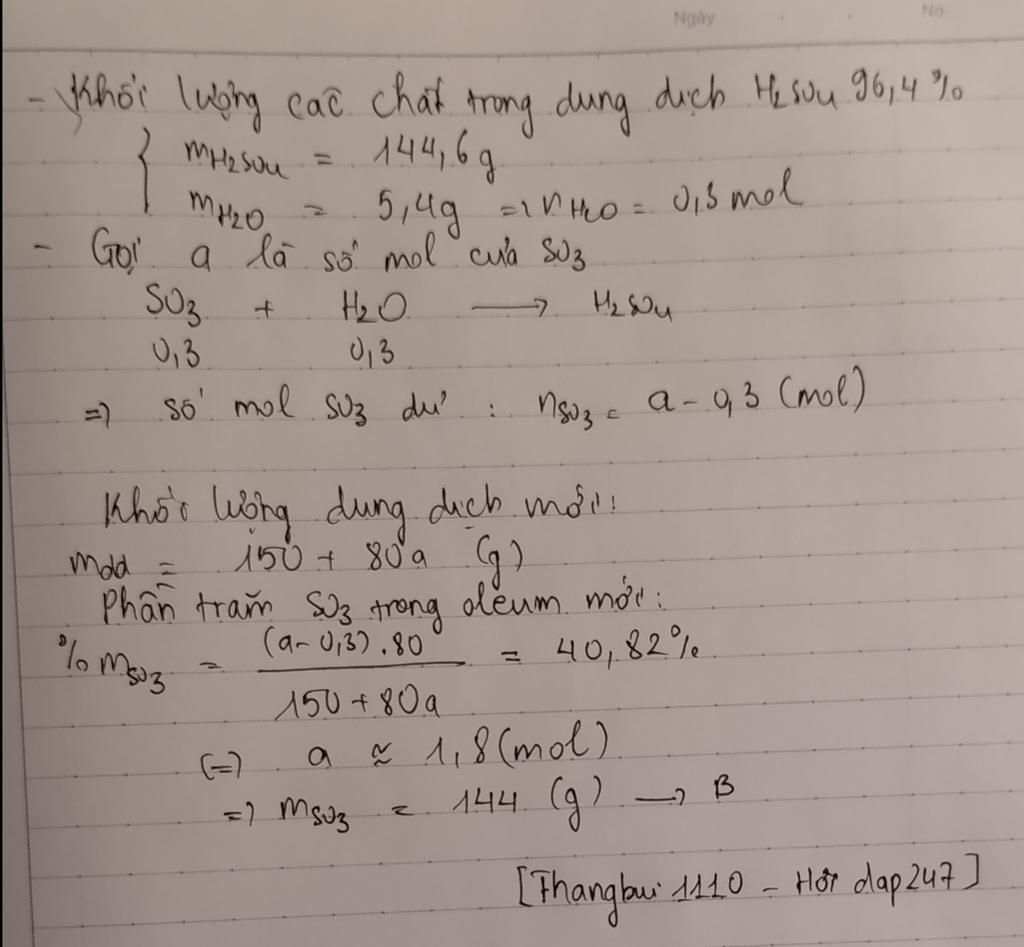 Ngày No
- Khối lượng các chất trong dung dịch H2SO4 96,4%
{ mH2SO4 = 144,6g
mH2O = 5,4g => nH2O = 0,3 mol
- Gọi a là số mol của SO3
SO3 + H2O → H2SO4
0,3 0,3
=> số mol SO3 dư : nSO3 = a - 0,3 (mol)
Khối lượng dung dịch mới:
mdd = 150 + 80a (g)
Phần trăm SO3 trong oleum mới:
%mSO3 = (a-0,3).80 / 150 + 80a = 40,82%
(=) a ≈ 1,8 (mol)
=> mSO3 = 144 (g) → B
[Thangbui 1110 - Hỏi đap247]